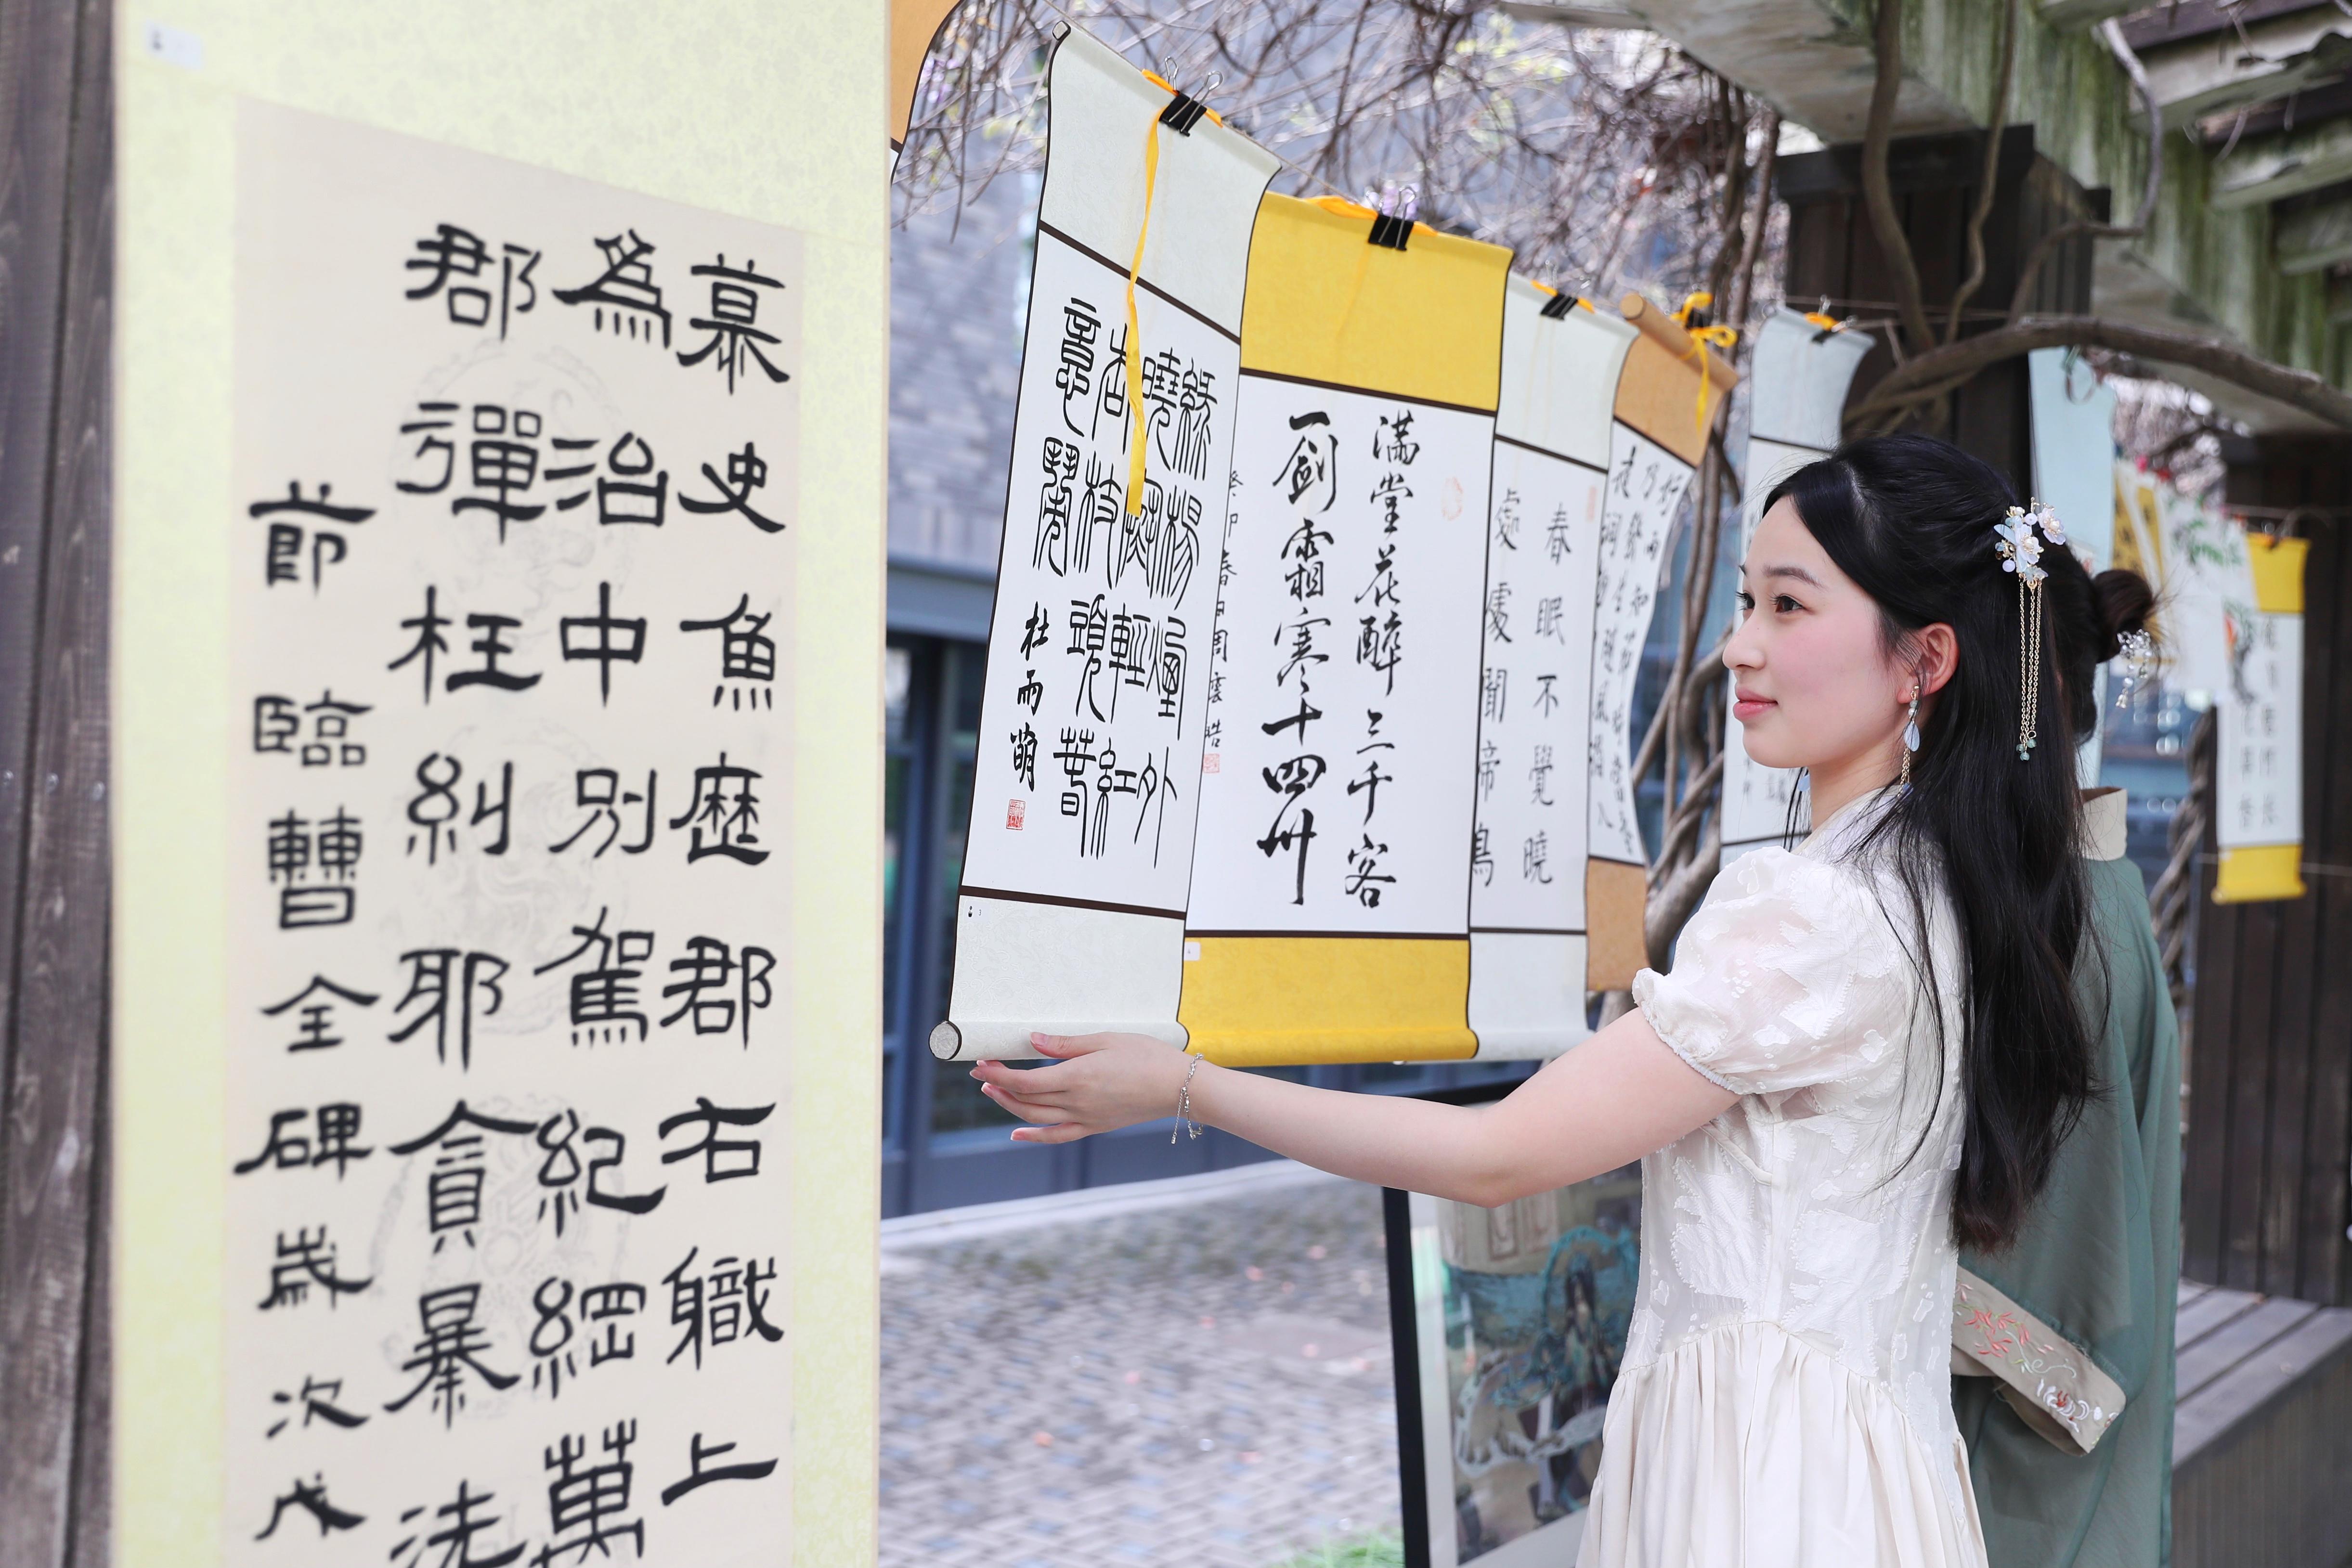 慕史魚歷郡右職上
爲治中別駕紀綱萬
郡彈枉糾耶貪暴洗
節臨曹全碑歲次戊
綠楊煙外
曉寒輕紅
杏枝頭春
意鬧
杜雨萌
满堂花醉三千客
一劍霜寒十四州
癸卯春月周雲皓
春眠不覺曉
處處聞啼鳥